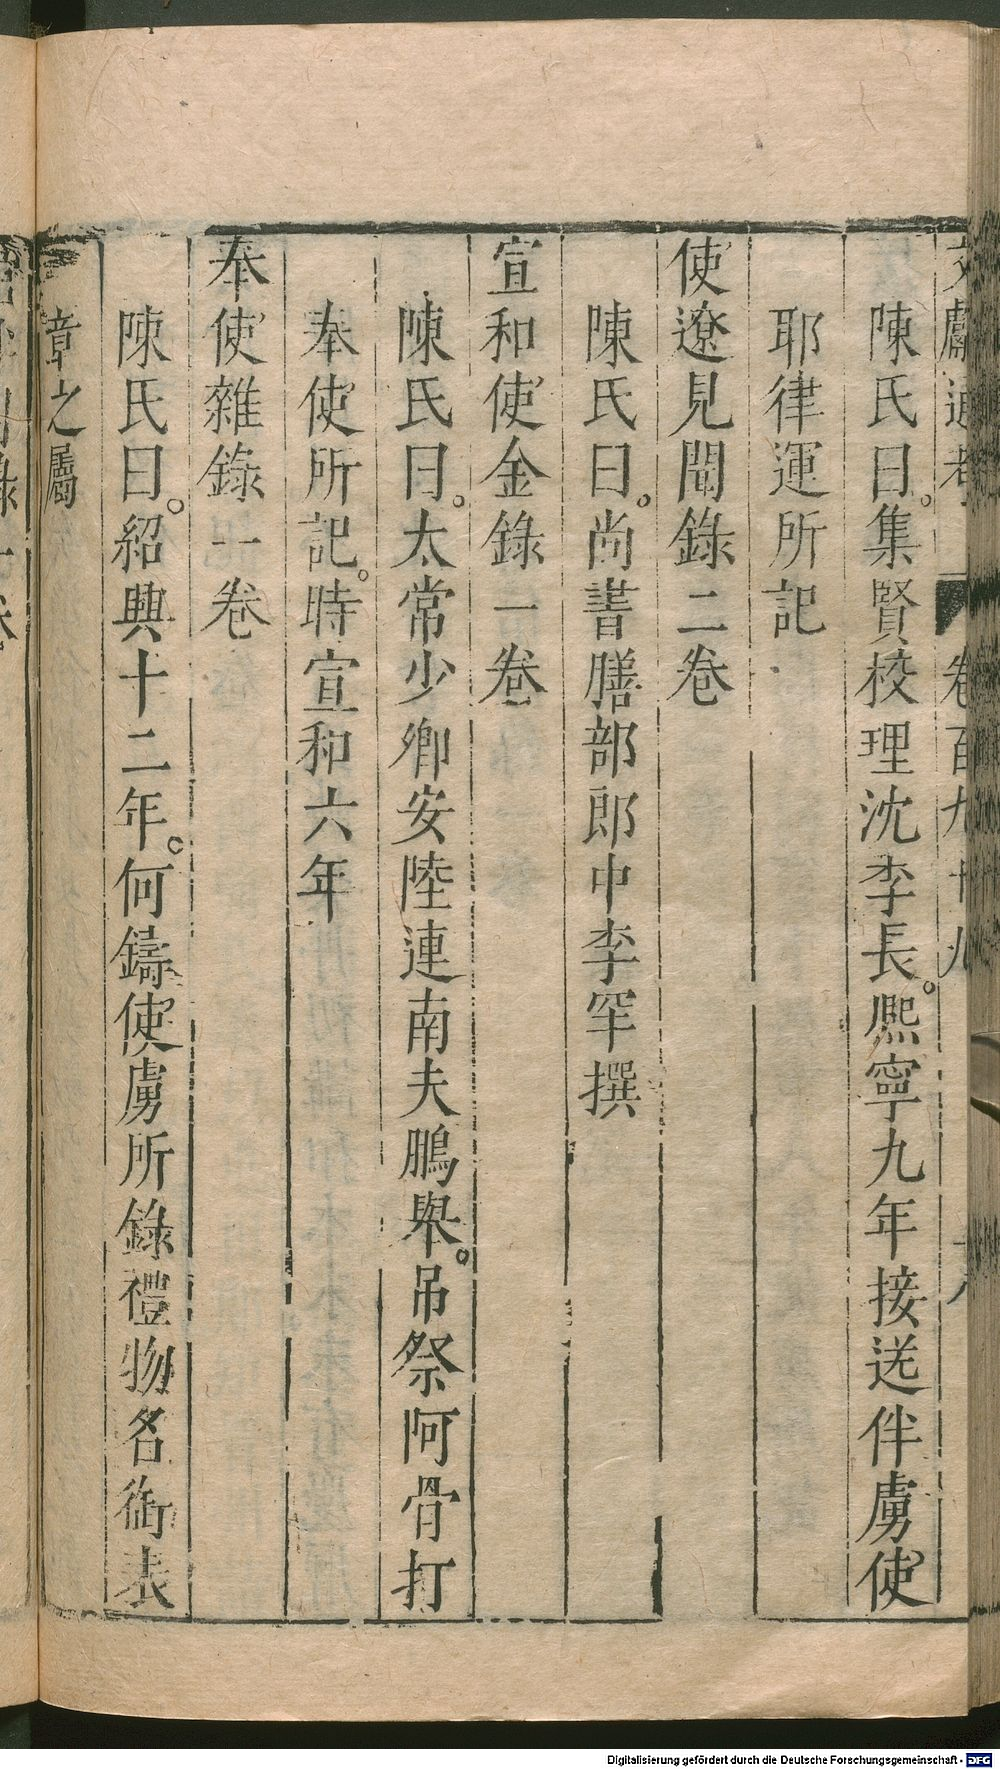 文獻通考 卷百九十九 六
陳氏曰集賢校理沈季長熙寧九年接送伴虜使
耶律運所記
使遼見聞錄二卷
陳氏曰尚書膳部郎中李罕撰
宣和使金錄一卷
陳氏曰太常少卿安陸連南夫鵬舉弔祭阿骨打
奉使所記時宣和六年
奉使雜錄一卷
陳氏曰紹興十二年何鑄使虜所錄禮物名銜表
章之屬
Digitalisierung gefördert durch die Deutsche Forschungsgemeinschaft - DFG